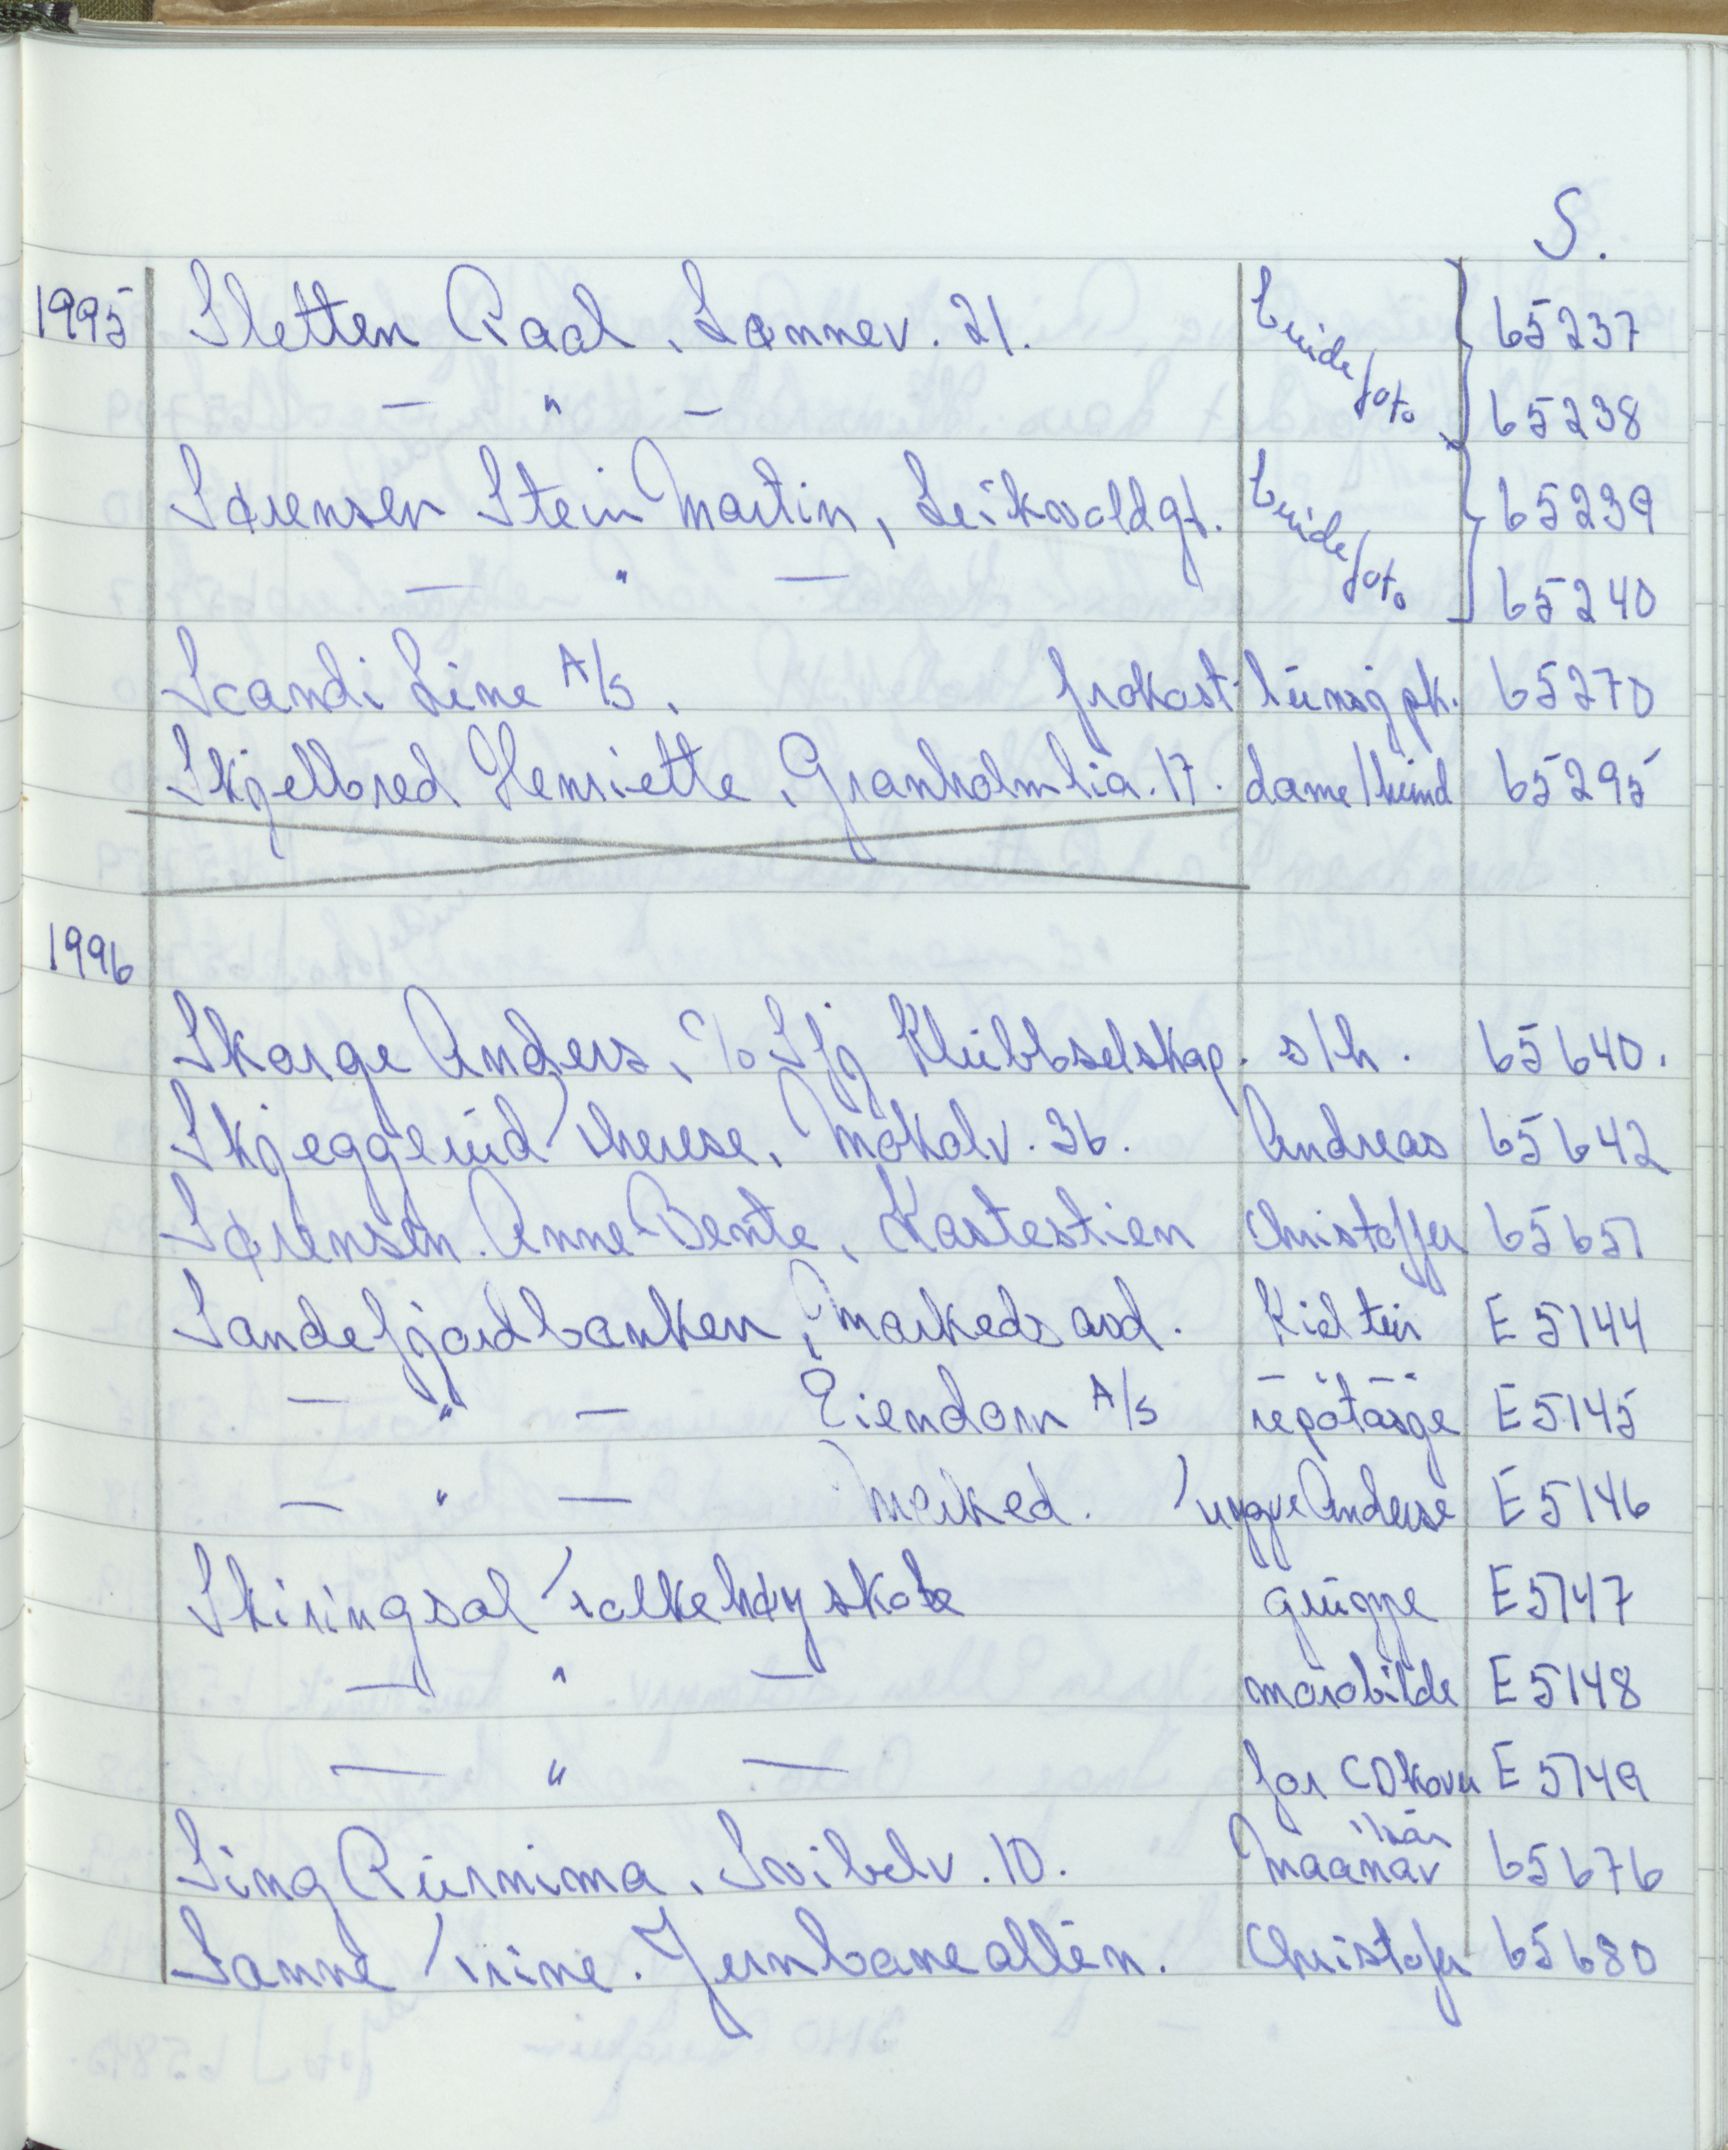 S.
1995 Sletten Roal, Lønnev. 21. brudefoto 65237
— " — 65238
Sørensen Stein Martin, Leikvoldgt. brudefoto 65239
— " — 65240
Scandi Line A/S, frokost-lunsjpk. 65270
Skjelbred Henriette, Granholmlia. 17. dame/hund 65295
1996
Skarge Anders, c/o Sfj Klubbselskap. s/h. 65640.
Skjeggerud Therese, Mokolv. 36. Andreas 65642
Sørensen. Anne-Bente, Kastestien Christoffer 65651
Sandefjordbanken, Markeds avd. E5144
— " — Eiendom A/S E5145
— " — Marked. Yngve Anderse E5146
Skiringsal Folkehøyskole gruppe E5147
— " — E5148
— " — for CD kover E5149
Sing Purnima, Svibelv. 10. Maanav 65676
Sanne Trine. Jernbanealleen. Christofer 65680